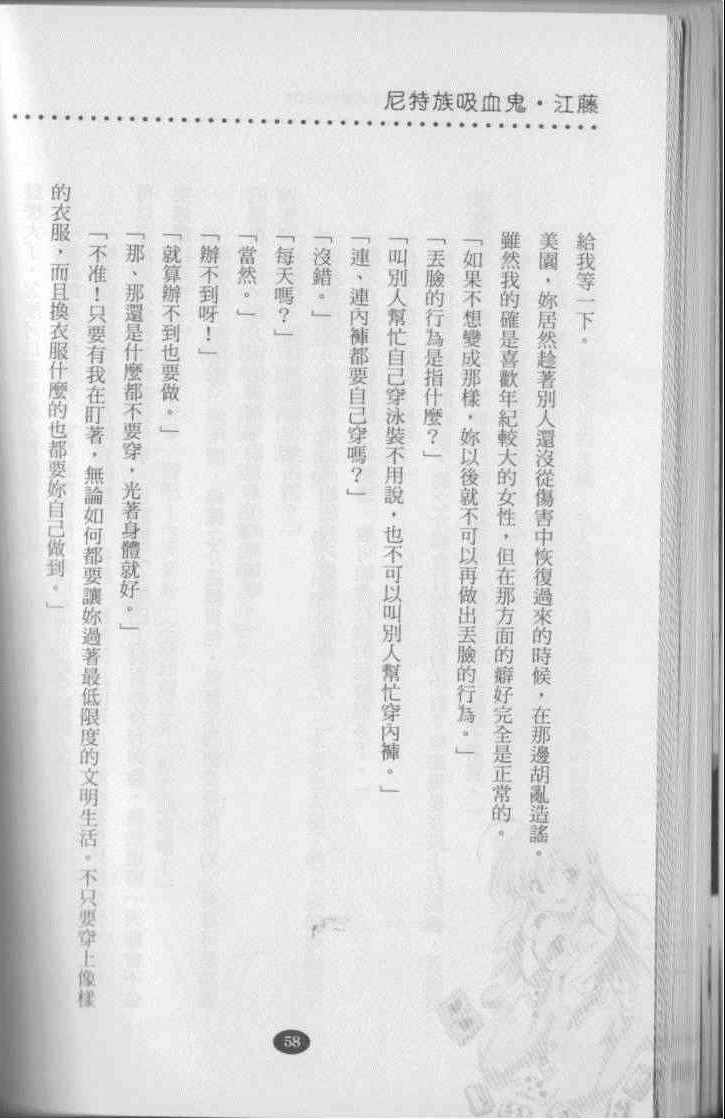 尼特族吸血鬼・江藤
給我等一下。
美園，妳居然趁著別人還沒從傷害中恢復過來的時候，在那邊胡亂造謠。
雖然我的確是喜歡年紀較大的女性，但在那方面的癖好完全是正常的。
「如果不想變成那樣，妳以後就不可以再做出丟臉的行為。」
「丟臉的行為是指什麼？」
「叫別人幫忙自己穿泳裝不用說，也不可以叫別人幫忙穿內褲。」
「連、連內褲都要自己穿嗎？」
「沒錯。」
「每天嗎？」
「當然。」
「辦不到呀！」
「就算辦不到也要做。」
「那、那還是什麼都不要穿，光著身體就好。」
「不准！只要有我在盯著，無論如何都要讓妳過著最低限度的文明生活。不只要穿上像樣
的衣服，而且換衣服什麼的也都要妳自己做到。」
58